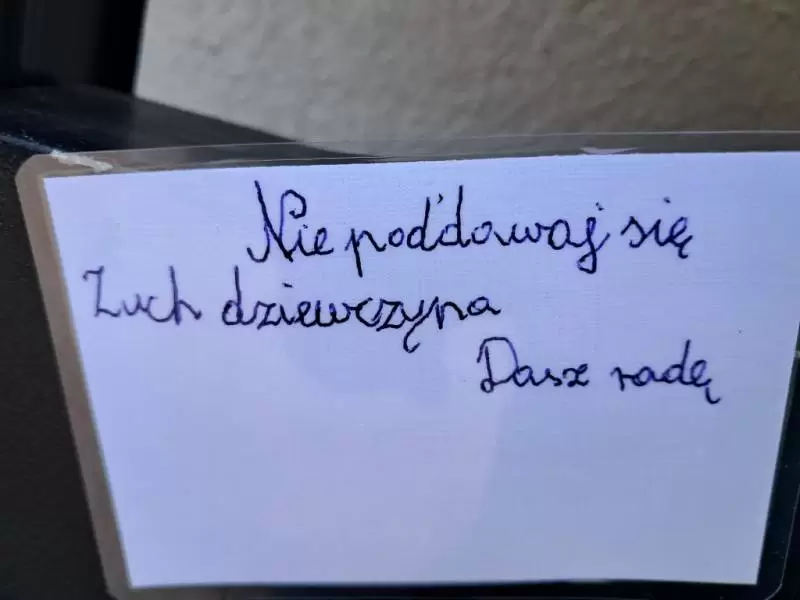 Nie poddawaj się
Zuch dziewczyna
Dasz radę